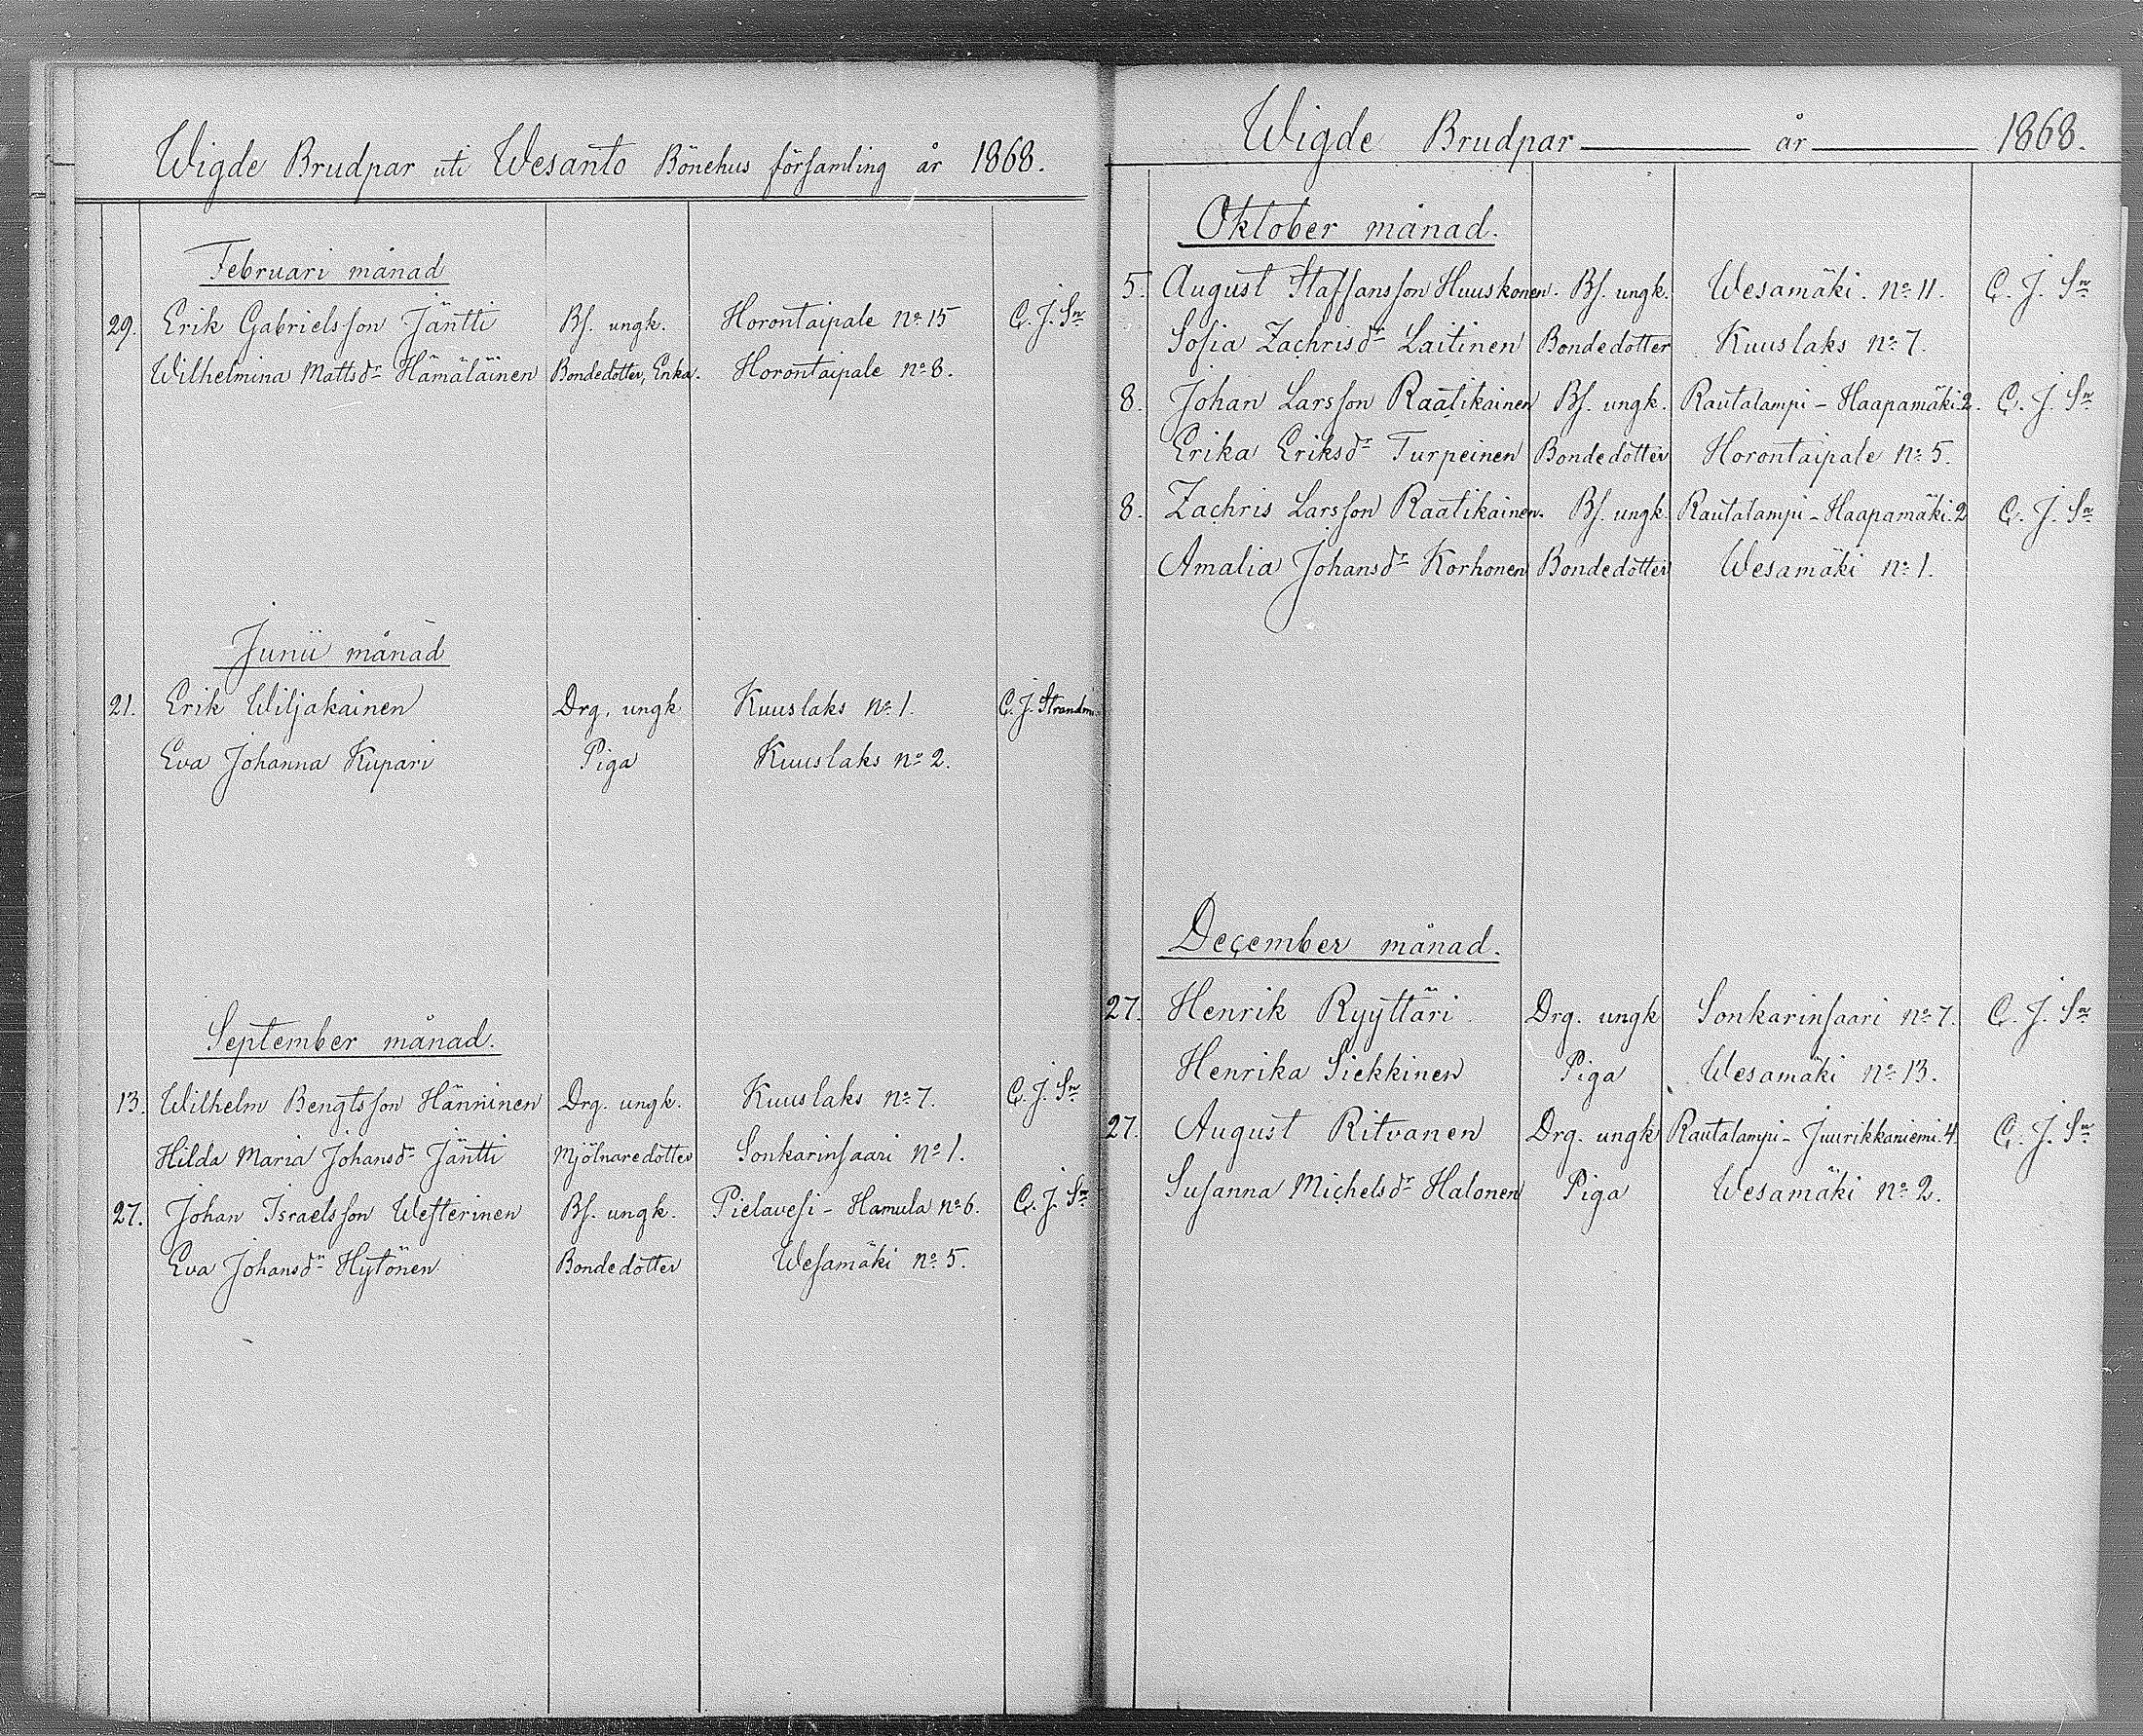 Wigde Brudpar uti Wesanto Bönehus församling år 1868.
Februari månad
29. Erik Gabrielsson Jäntti Bs. ungk. Horontaipale No 15 C. J. Sn
Wilhelmina Mattsdr Hämäläinen Bondedotter, Enka. Horontaipale No 8.
Junii månad
21. Erik Wiljakainen Drg. ungk Kuuslaks No 1. C. J. Strandm
Eva Johanna Kupari Piga Kuuslaks No 2.
September månad.
13. Wilhelm Bengtsson Hänninen Drg. ungk. Kuuslaks No 7. C. J. Sn
Hilda Maria Johansdr Jäntti Mjölnaredotter Sonkarinsaari No 1.
27. Johan Israelsson Westerinen Bs. ungk. Pielavesi - Hamula No 6. C. J. Sn
Eva Johansdr Hytönen Bondedotter Wesamäki No 5.
Wigde Brudpar år 1868.
Oktober månad.
5. August Staffansson Huuskonen. Bs. ungk. Wesamäki. No 11. C. J. Sn
Sofia Zachrisdr Laitinen Bondedotter Kuuslaks No 7.
8. Johan Larsson Raatikainen Bs. ungk. Rautalampi - Haapamäki. 2. C. J. Sn
Erika Eriksdr Turpeinen Bondedotter Horontaipale No 5.
8. Zachris Larsson Raatikainen. Bs. ungk Rautalampi - Haapamäki. 2 C. J. Sn
Amalia Johansdr Korhonen Bondedotter Wesamäki No 1.
December månad.
27. Henrik Ryyttäri Drg. ungk Sonkarinsaari No 7. C. J. Sn
Henrika Siekkinen Piga Wesamäki No 13.
27. August Ritvanen Drg. ungk Rautalampi - Juurikkaniemi. 4. C. J. Sn
Susanna Michelsdr Halonen Piga Wesamäki No 2.